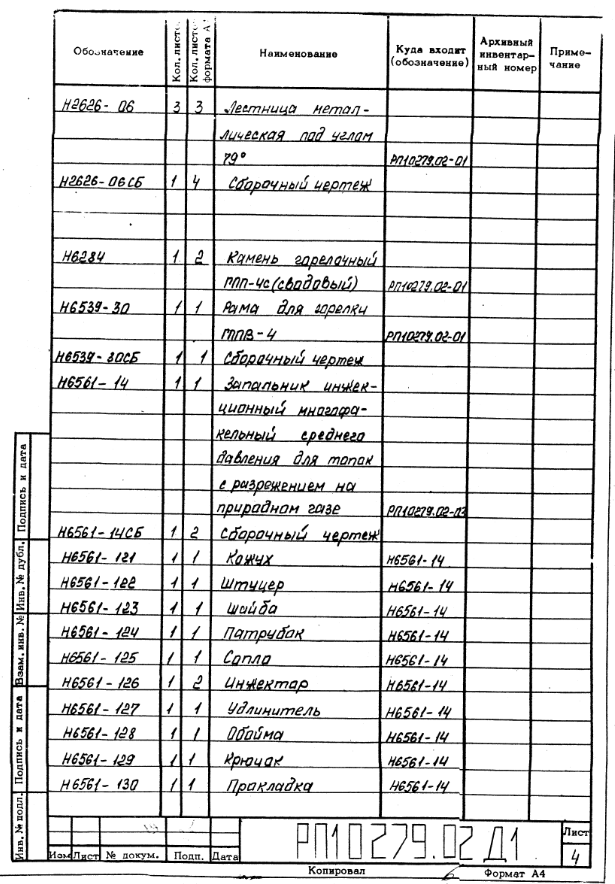 Обозначение Кол. листов Кол. листов формата А Наименование Куда входит (обозначение) Архивный инвентарный номер Примечание
Н2626-06 3 3 Лестница метал-
лическая под углом
79° РП10279.02-01
Н2626-06СБ 1 4 Сборочный чертеж
Н6284 1 2 Камень горелочный
ГПП-4с(сводовый) РП10279.02-01
Н6539-30 1 1 Рама для горелки
ГППВ-4 РП10279.02-01
Н6539-30СБ 1 1 Сборочный чертеж
Н6561-14 1 1 Запальник инжек-
ционный многофа-
кельный среднего
давления для топок
с разрежением на
природном газе РП10279.02-03
Н6561-14СБ 1 2 Сборочный чертеж
Н6561-121 1 1 Кожух Н6561-14
Н6561-122 1 1 Штуцер Н6561-14
Н6561-123 1 1 Шайба Н6561-14
Н6561-124 1 1 Патрубок Н6561-14
Н6561-125 1 1 Сопло Н6561-14
Н6561-126 1 2 Инжектор Н6561-14
Н6561-127 1 1 Удлинитель Н6561-14
Н6561-128 1 1 Обойма Н6561-14
Н6561-129 1 1 Крючок Н6561-14
Н6561-130 1 1 Прокладка Н6561-14
Подпись и дата
Инв. № дубл.
Взам. инв. №
Подпись и дата
Инв. № подл.
РП10279.02 Д1
Лист
4
Изм Лист № докум. Подп. Дата
Копировал Формат А4